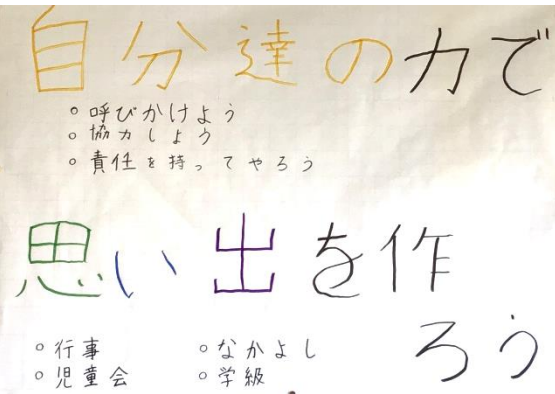 自分達の力で
○呼びかけよう
○協力しよう
○責任を持ってやろう
思い出を作
ろう
○行事 ○なかよし
○児童会 ○学級